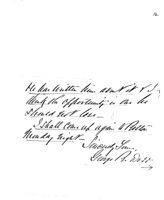 He has written him about it & I
think the opportunity is one he
should not lose—
I shall come up again to Boston
Monday night—
Sincerely Yours,
George